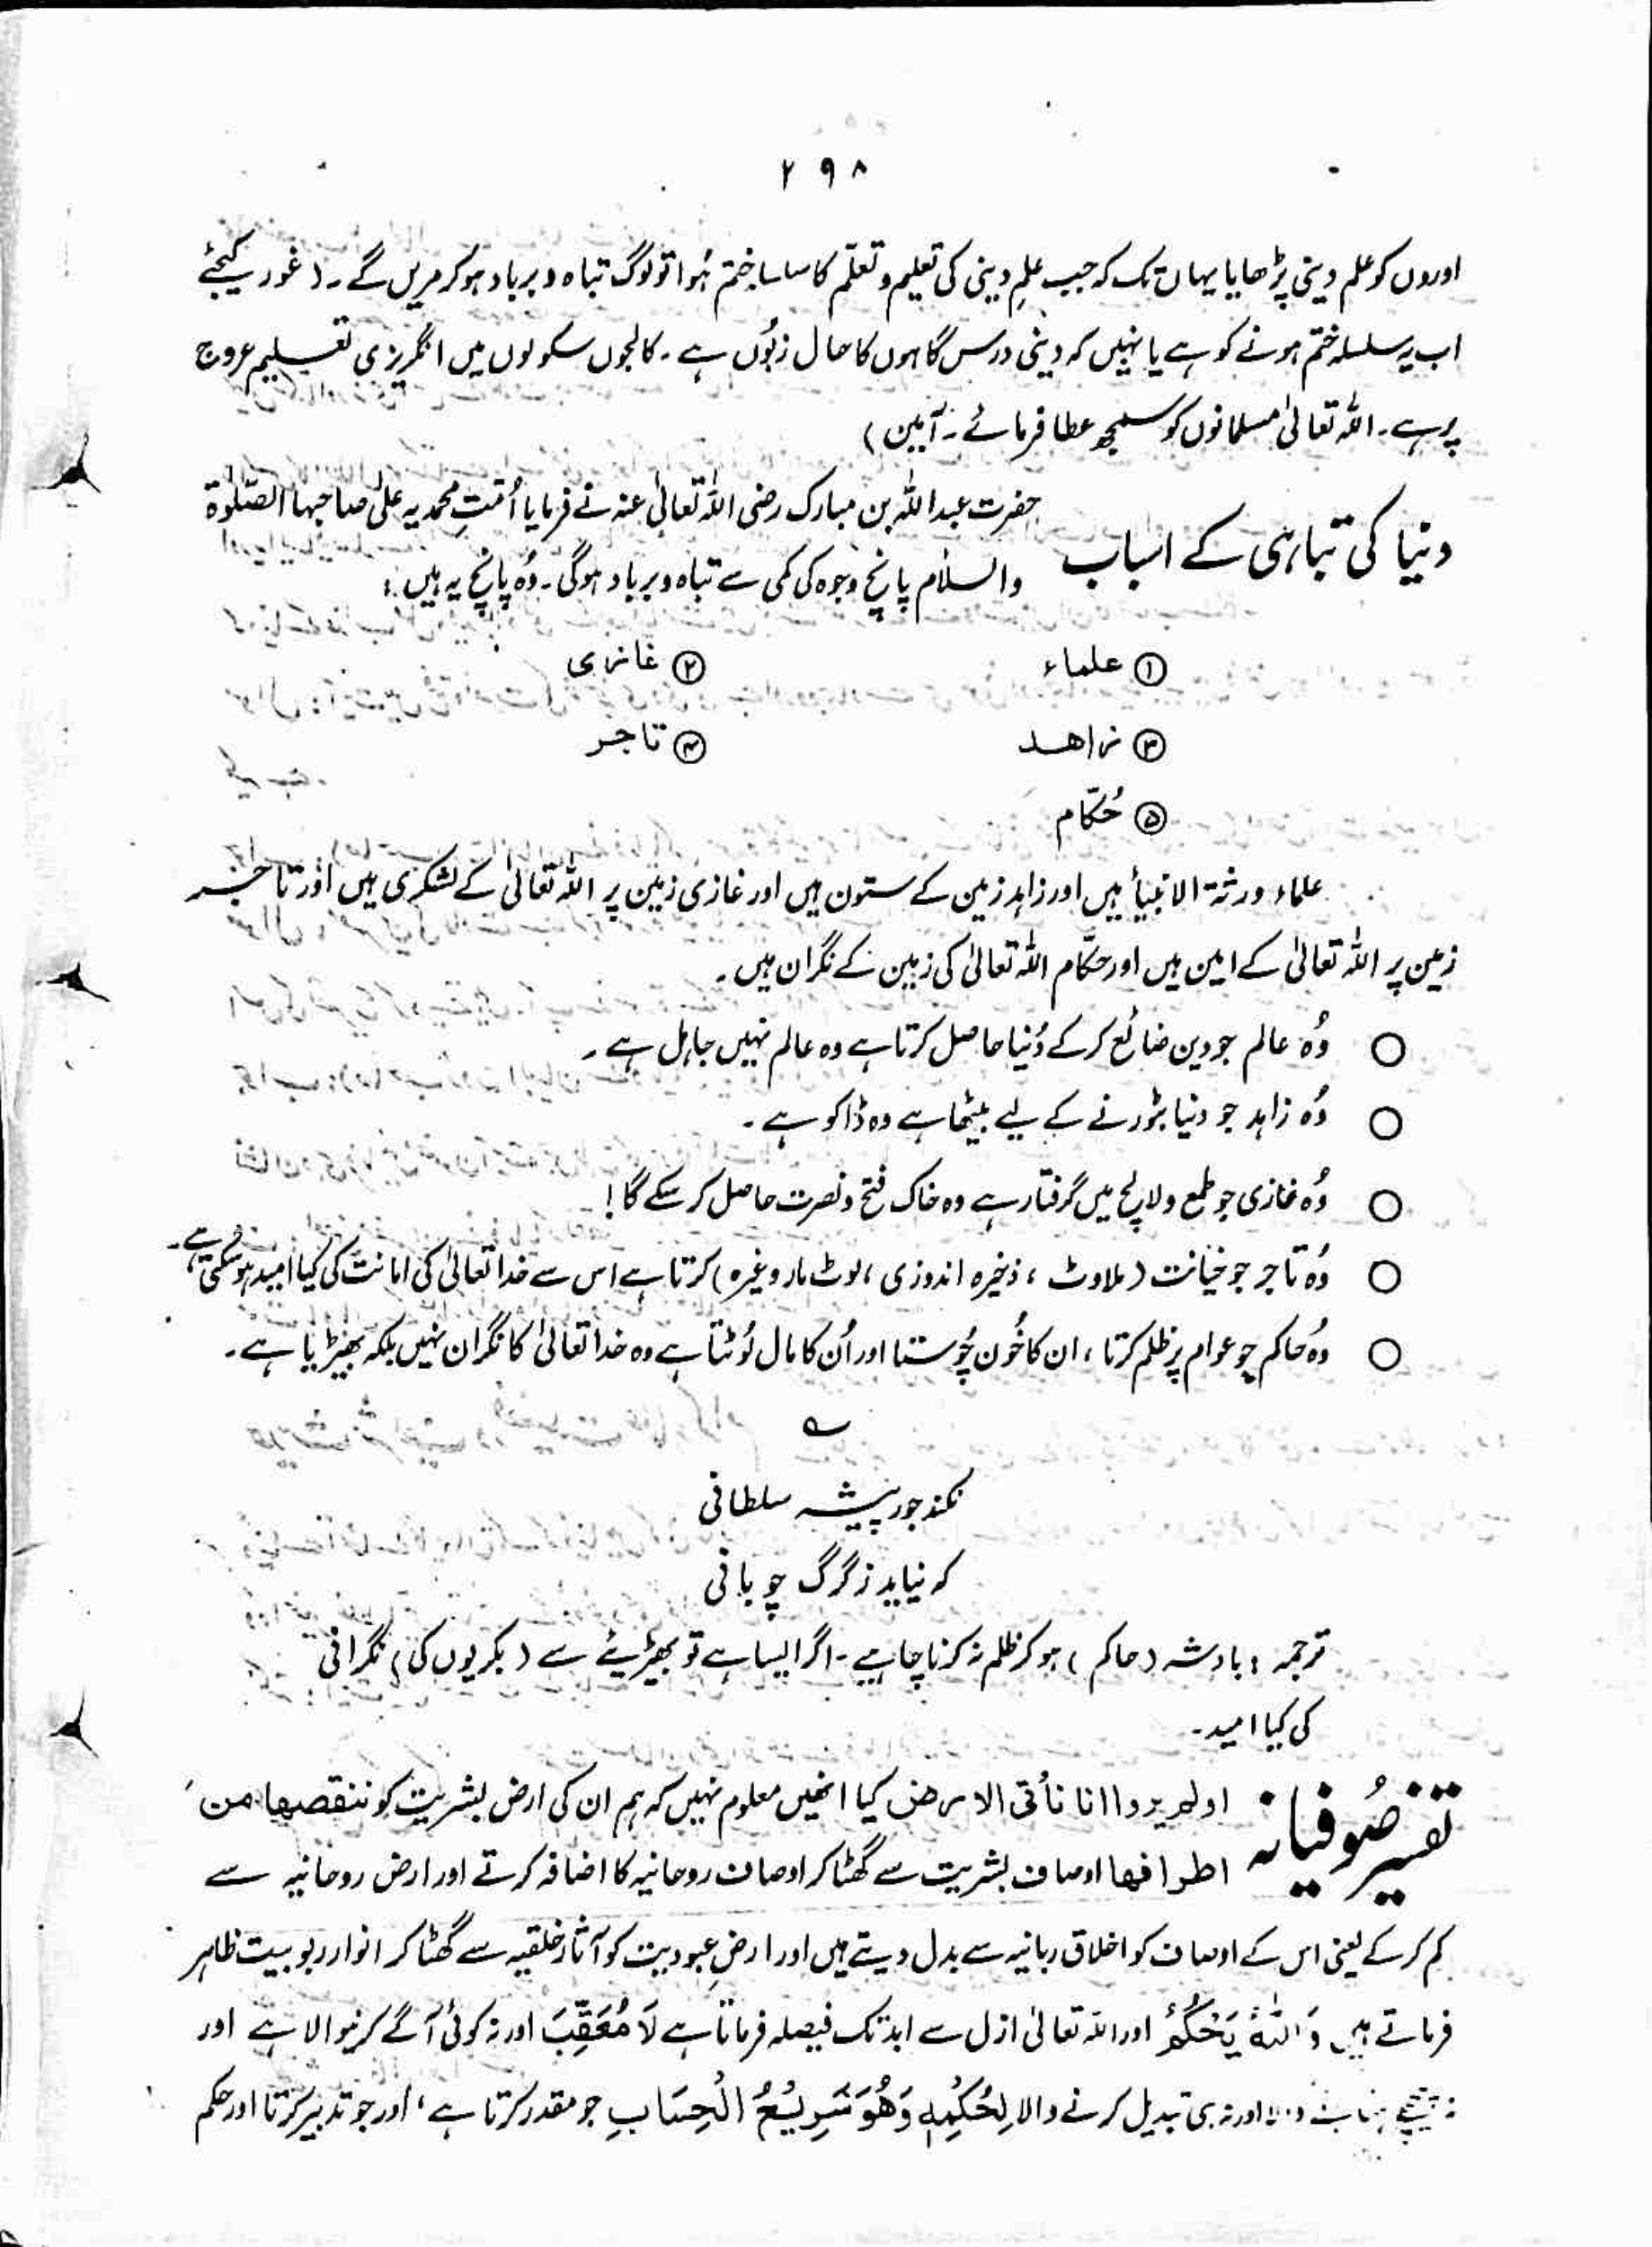 ۲۹۸
اوروں کو علم دینی پڑھایا یہاں تک کہ جب علمِ دینی کی تعلیم و تعلّم کا ساسا ختم ہُوا تو لوگ تباہ و برباد ہو کر مریں گے۔ (غور کیجئے
اب یہ سلسلہ ختم ہونے کو ہے یا نہیں کہ دینی درس گاہوں کا حال زبُوں ہے۔ کالجوں سکولوں میں انگریزی تعلیم عروج
پر ہے۔ اللہ تعالیٰ مسلمانوں کو سمجھ عطا فرمائے۔ آمین)
دنیا کی تباہی کے اسباب
حضرت عبداللہ بن مبارک رضی اللہ تعالیٰ عنہ نے فرمایا اُمّتِ محمدیہ علیٰ صاحبہا الصّلوٰۃ
والسلام پانچ وجوہ کی کمی سے تباہ و برباد ہوگی۔ وُہ پانچ یہ ہیں:
① علماء ② غازی
③ زاھد ④ تاجر
⑤ حُکّام
علماء ورثۃ الانبیأ ہیں اور زاہد زمین کے ستون ہیں اور غازی زمین پر اللہ تعالیٰ کے لشکری ہیں اور تاجر
زمین پر اللہ تعالیٰ کے امین ہیں اور حکّام اللہ تعالیٰ کی زمین کے نگران ہیں۔
○ وُہ عالم جو دین ضائع کر کے دُنیا حاصل کرتا ہے وہ عالم نہیں جاہل ہے۔
○ وُہ زاہد جو دنیا بٹورنے کے لیے بیٹھا ہے وہ ڈاکو ہے۔
○ وُہ غازی جو طمع و لالچ میں گرفتار ہے وہ خاک فتح و نصرت حاصل کر سکے گا!
○ وُہ تاجر جو خیانت (ملاوٹ، ذخیرہ اندوزی، لوٹ مار وغیرہ) کرتا ہے اس سے خدا تعالیٰ کی امانت کی کیا امید ہوسکتی ہے۔
○ وُہ حاکم جو عوام پر ظلم کرتا، ان کا خُون چُوستا اور اُن کا مال لُوٹتا ہے وہ خدا تعالیٰ کا نگران نہیں بلکہ بھیڑیا ہے۔
؎
نکند جور پیشہ سلطانی
کہ نیاید ز گرگ چوپانی
ترجمہ: بادشہ (حاکم) ہو کر ظلم نہ کرنا چاہیے۔ اگر ایسا ہے تو بھیڑیئے سے (بکریوں کی) نگرانی
کی کیا امید۔
تفسیر صُوفیانہ
اولم یروا انا نأتی الارض کیا انھیں معلوم نہیں کہ ہم ان کی ارض بشریت کو ننقصھا من
اطرافھا اوصاف بشریت سے گھٹا کر اوصاف روحانیہ کا اضافہ کرتے اور ارض روحانیہ سے
کم کر کے یعنی اس کے اوصاف کو اخلاق ربانیہ سے بدل دیتے ہیں اور ارضِ عبودیت کو آثار خلقیہ سے گھٹا کر انوار ربوبیت ظاہر
فرماتے ہیں وَاللّٰہُ یَحْکُمُ اور اللہ تعالیٰ ازل سے ابد تک فیصلہ فرماتا ہے لَا مُعَقِّبَ اور نہ کوئی آگے کرنیوالا ہے اور
نہ پیچھے اور نہ ہی تبدیل کرنے والا لِحُکْمِہٖ وَھُوَ سَرِیْعُ الْحِسَابِ جو مقدر کرتا ہے، اور جو تدبیر کرتا اور حکم